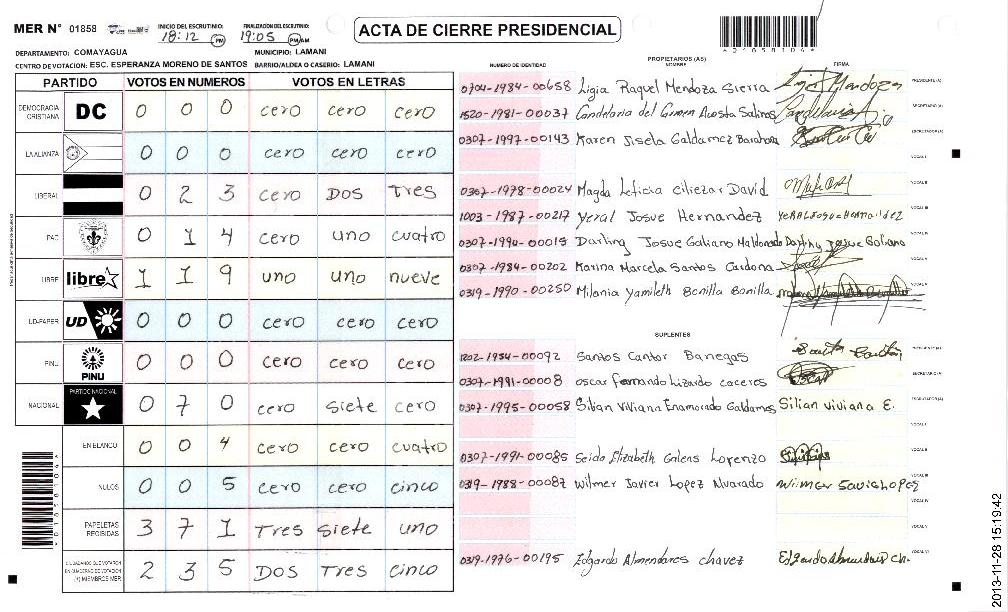 MER N° 01858 INICIO DEL ESCRUTINIO: 18:12 PM FINALIZACIÓN DEL ESCRUTINIO: 19:05 PM AM
ACTA DE CIERRE PRESIDENCIAL
DEPARTAMENTO: COMAYAGUA MUNICIPIO: LAMANI
CENTRO DE VOTACION: ESC. ESPERANZA MORENO DE SANTOS BARRIO/ALDEA O CASERIO: LAMANI
PARTIDO VOTOS EN NUMEROS VOTOS EN LETRAS
DEMOCRACIA CRISTIANA DC 0 0 0 cero cero cero
LA ALIANZA 0 0 0 cero cero cero
LIBERAL 0 2 3 cero DOS Tres
PAC 0 1 4 cero uno cuatro
LIBRE libre 1 1 9 uno uno nueve
UD-FAPER UD 0 0 0 cero cero cero
PINU PINU 0 0 0 cero cero cero
NACIONAL PARTIDO NACIONAL 0 7 0 cero siete cero
EN BLANCO 0 0 4 cero cero cuatro
NULOS 0 0 5 cero cero cinco
PAPELETAS RECIBIDAS 3 7 1 Tres siete uno
CIUDADANOS QUE VOTARON EN CUADERNO DE VOTACION (+) MIEMBROS MER 2 3 5 DOS Tres cinco
PROPIETARIOS (AS)
NUMERO DE IDENTIDAD NOMBRE FIRMA
0704-1984-00658 Ligia Raquel Mendoza Sierra PRESIDENTE (A)
1520-1981-00037 Candelaria del Carmen Acosta Salinas SECRETARIO (A)
0307-1997-00143 Karen Jisela Galdamez Barahona ESCRUTADOR (A)
VOCAL I
0307-1978-00024 Magda Leticia Ciliezar David VOCAL II
1003-1987-00217 Yeral Josue Hernandez YeRAL JOSUE HERNANDEZ VOCAL III
0307-1994-00015 Darling Josue Galiano Maldonado Darling Josue Galiano VOCAL IV
0307-1984-00202 Karina Marcela Santos Cardona VOCAL V
0319-1990-00250 Milania Yamileth Bonilla Bonilla
SUPLENTES
1202-1954-00092 Santos Cantor Banegas PRESIDENTE (A)
0307-1991-00008 oscar fernando Lizardo caceres SECRETARIO (A)
0307-1995-00058 Silian Viviana Enamorado Galdames Silian viviana E. ESCRUTADOR (A)
VOCAL I
0307-1991-00085 Seida Elizabeth Galeas Lorenzo VOCAL II
0319-1988-00087 Wilmer Javier Lopez Alvarado VOCAL III
VOCAL IV
VOCAL V
0319-1976-00195 Edgardo Almendares chavez VOCAL VI
2013-11-28 15:19:42